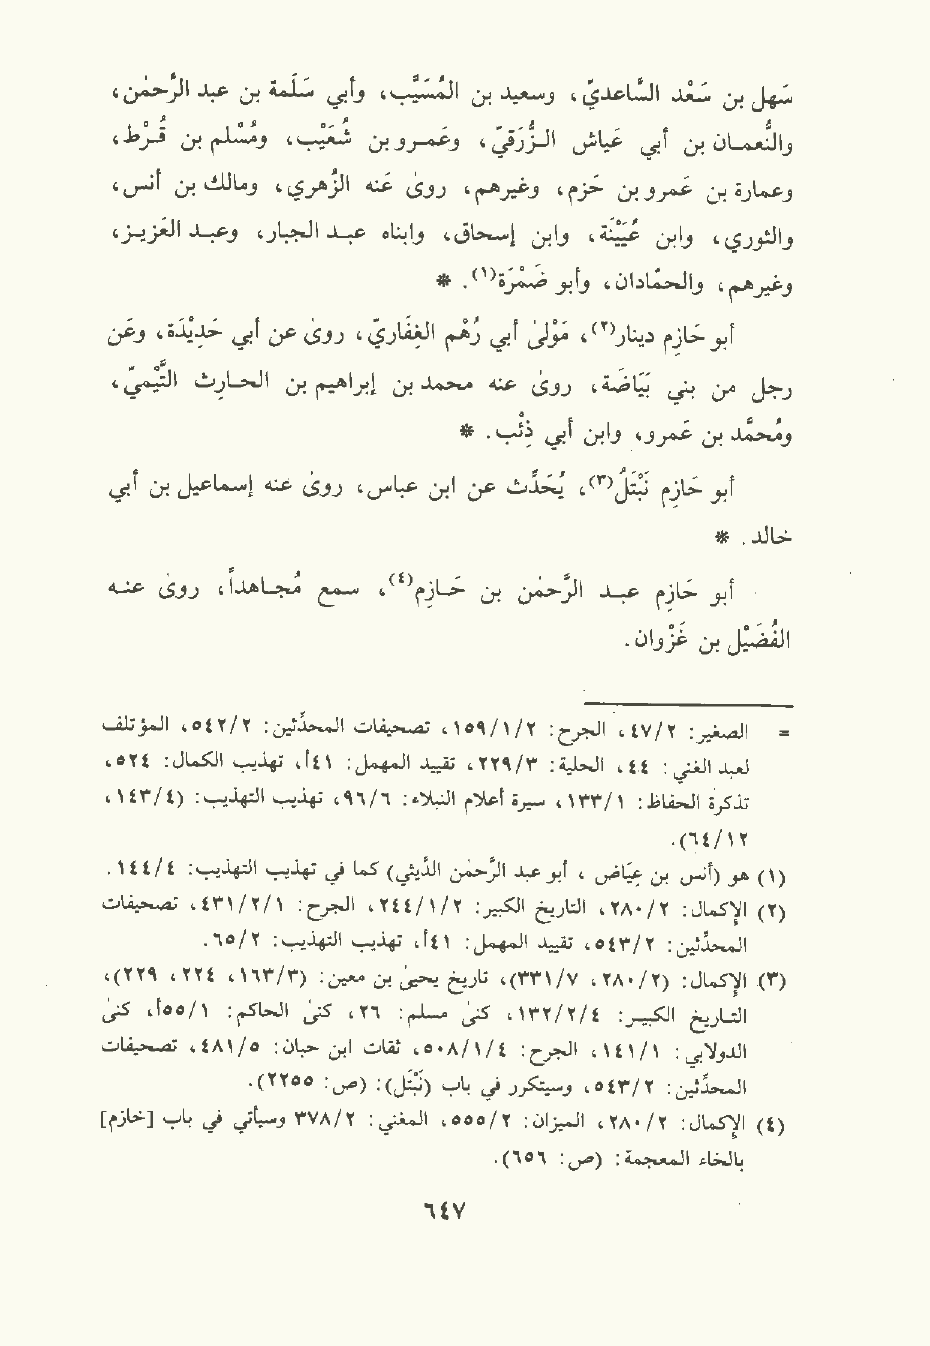 سَهل بن سَعْد السَّاعديِّ، وسعيد بن المُسَيَّب، وأبي سَلَمة بن عبد الرَّحمٰن،
والنُّعمـان بن أبي عَياش الـزُّرَقيّ، وعَمـرو بن شُعَيْب، ومُسْلم بن قُـرْط،
وعمارة بن عَمرو بن حَزم، وغيرهم، روىٰ عَنه الزُّهري، ومالك بن أنس،
والثوري، وابن عُيَيْنَة، وابن إسحاق، وابناه عبـد الجبار، وعبـد العَزيـز،
وغيرهم، والحمَّادان، وأبو ضَمْرَة(١). *
أبو حَازِم دينار(٢)، مَوْلىٰ أبي رُهْم الغِفَاريّ، روىٰ عن أبي حَدِيْدَة، وعَن
رجل من بني بَيَاضَة، روىٰ عنه محمد بن إبراهيم بن الحـارِث التَّيْميّ،
ومُحمَّد بن عَمرو، وابن أبي ذِئْب. *
أبو حَازِم نَبْتَلُ(٣)، يُحَدِّث عن ابن عباس، روىٰ عنه إسماعيل بن أبي
خالد. *
أبو حَازِم عبـد الرَّحمٰن بن حَـازِم(٤)، سمع مُجـاهداً، روىٰ عنـه
الفُضَيْل بن غَزْوان.
= الصغير: ٤٧/٢، الجرح: ١٥٩/١/٢، تصحيفات المحدِّثين: ٥٤٢/٢، المؤتلف
لعبد الغني: ٤٤، الحلية: ٢٢٩/٣، تقييد المهمل: ٤١أ، تهذيب الكمال: ٥٢٤،
تذكرة الحفاظ: ١٣٣/١، سيرة أعلام النبلاء: ٩٦/٦، تهذيب التهذيب: (١٤٣/٤،
٦٤/١٢).
(١) هو (أنس بن عِيَاض، أبو عبد الرَّحمٰن اللَّيثي) كما في تهذيب التهذيب: ١٤٤/٤.
(٢) الإكمال: ٢٨٠/٢، التاريخ الكبير: ٢٤٤/١/٢، الجرح: ٤٣١/٢/١، تصحيفات
المحدِّثين: ٥٤٣/٢، تقييد المهمل: ٤١أ، تهذيب التهذيب: ٦٥/٢.
(٣) الإكمال: (٢٨٠/٢، ٣٣١/٧)، تاريخ يحيىٰ بن معين: (١٦٣/٣، ٢٢٤، ٢٢٩)،
التـاريخ الكبيـر: ١٣٢/٢/٤، كنىٰ مسلم: ٢٦، كنىٰ الحاكم: ٥٥/١أ، كنىٰ
الدولابي: ١٤١/١، الجرح: ٥٠٨/١/٤، ثقات ابن حبان: ٤٨١/٥، تصحيفات
المحدِّثين: ٥٤٣/٢، وسيتكرر في باب (نَبْتَل): (ص: ٢٢٥٥).
(٤) الإكمال: ٢٨٠/٢، الميزان: ٥٥٥/٢، المغني: ٣٧٨/٢ وسيأتي في باب [خازم]
بالخاء المعجمة: (ص: ٦٥٦).
٦٤٧